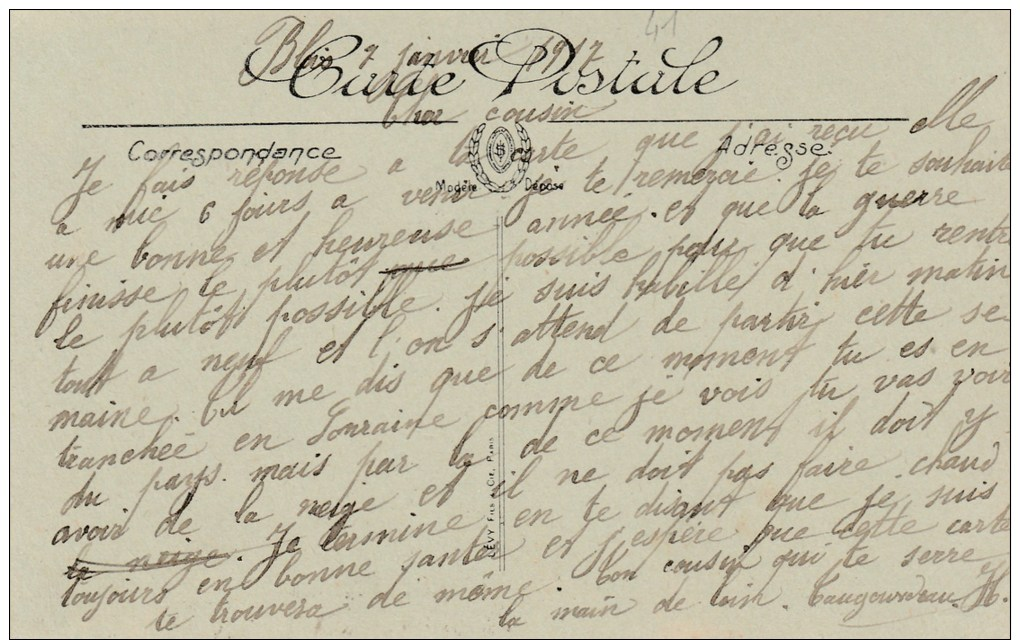 41
Blois 7 janvier 1917
Carte Postale
Cher cousin
Correspondance
Adresse
Modèle Déposé
Je fais réponse a la carte que j'ai reçu elle
a mie 6 jours a venir je te remercie. je te souhaite
une bonne et heureuse année. et que la guerre
finisse le plutôt que possible pour que tu rentre
le plutôt possible. je suis habillé d'hier matin
tout a neuf et l'on s'attend de partir cette se-
maine. tu me dis que de ce moment tu es en
tranchée en Lorraine comme je vois tu vas voir
du pays. mais par la de ce moment il doit y
avoir de la neige et il ne doit pas faire chaud
la neige. Je termine en te disant que je suis
toujours en bonne santé et j'espère que cette carte
te trouvera de même. ton cousin qui te serre
la main de loin. Taugourdeau H.
LÉVY FILS & CIE, PARIS